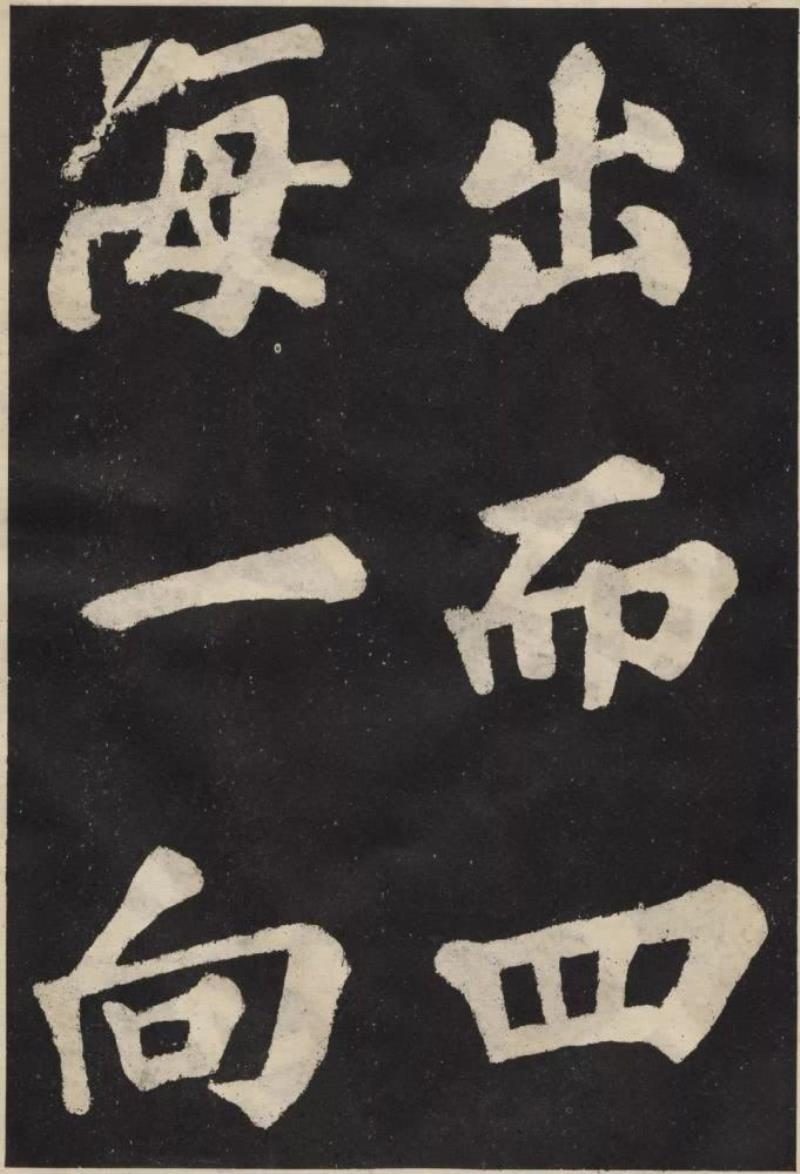 出而四
海一向